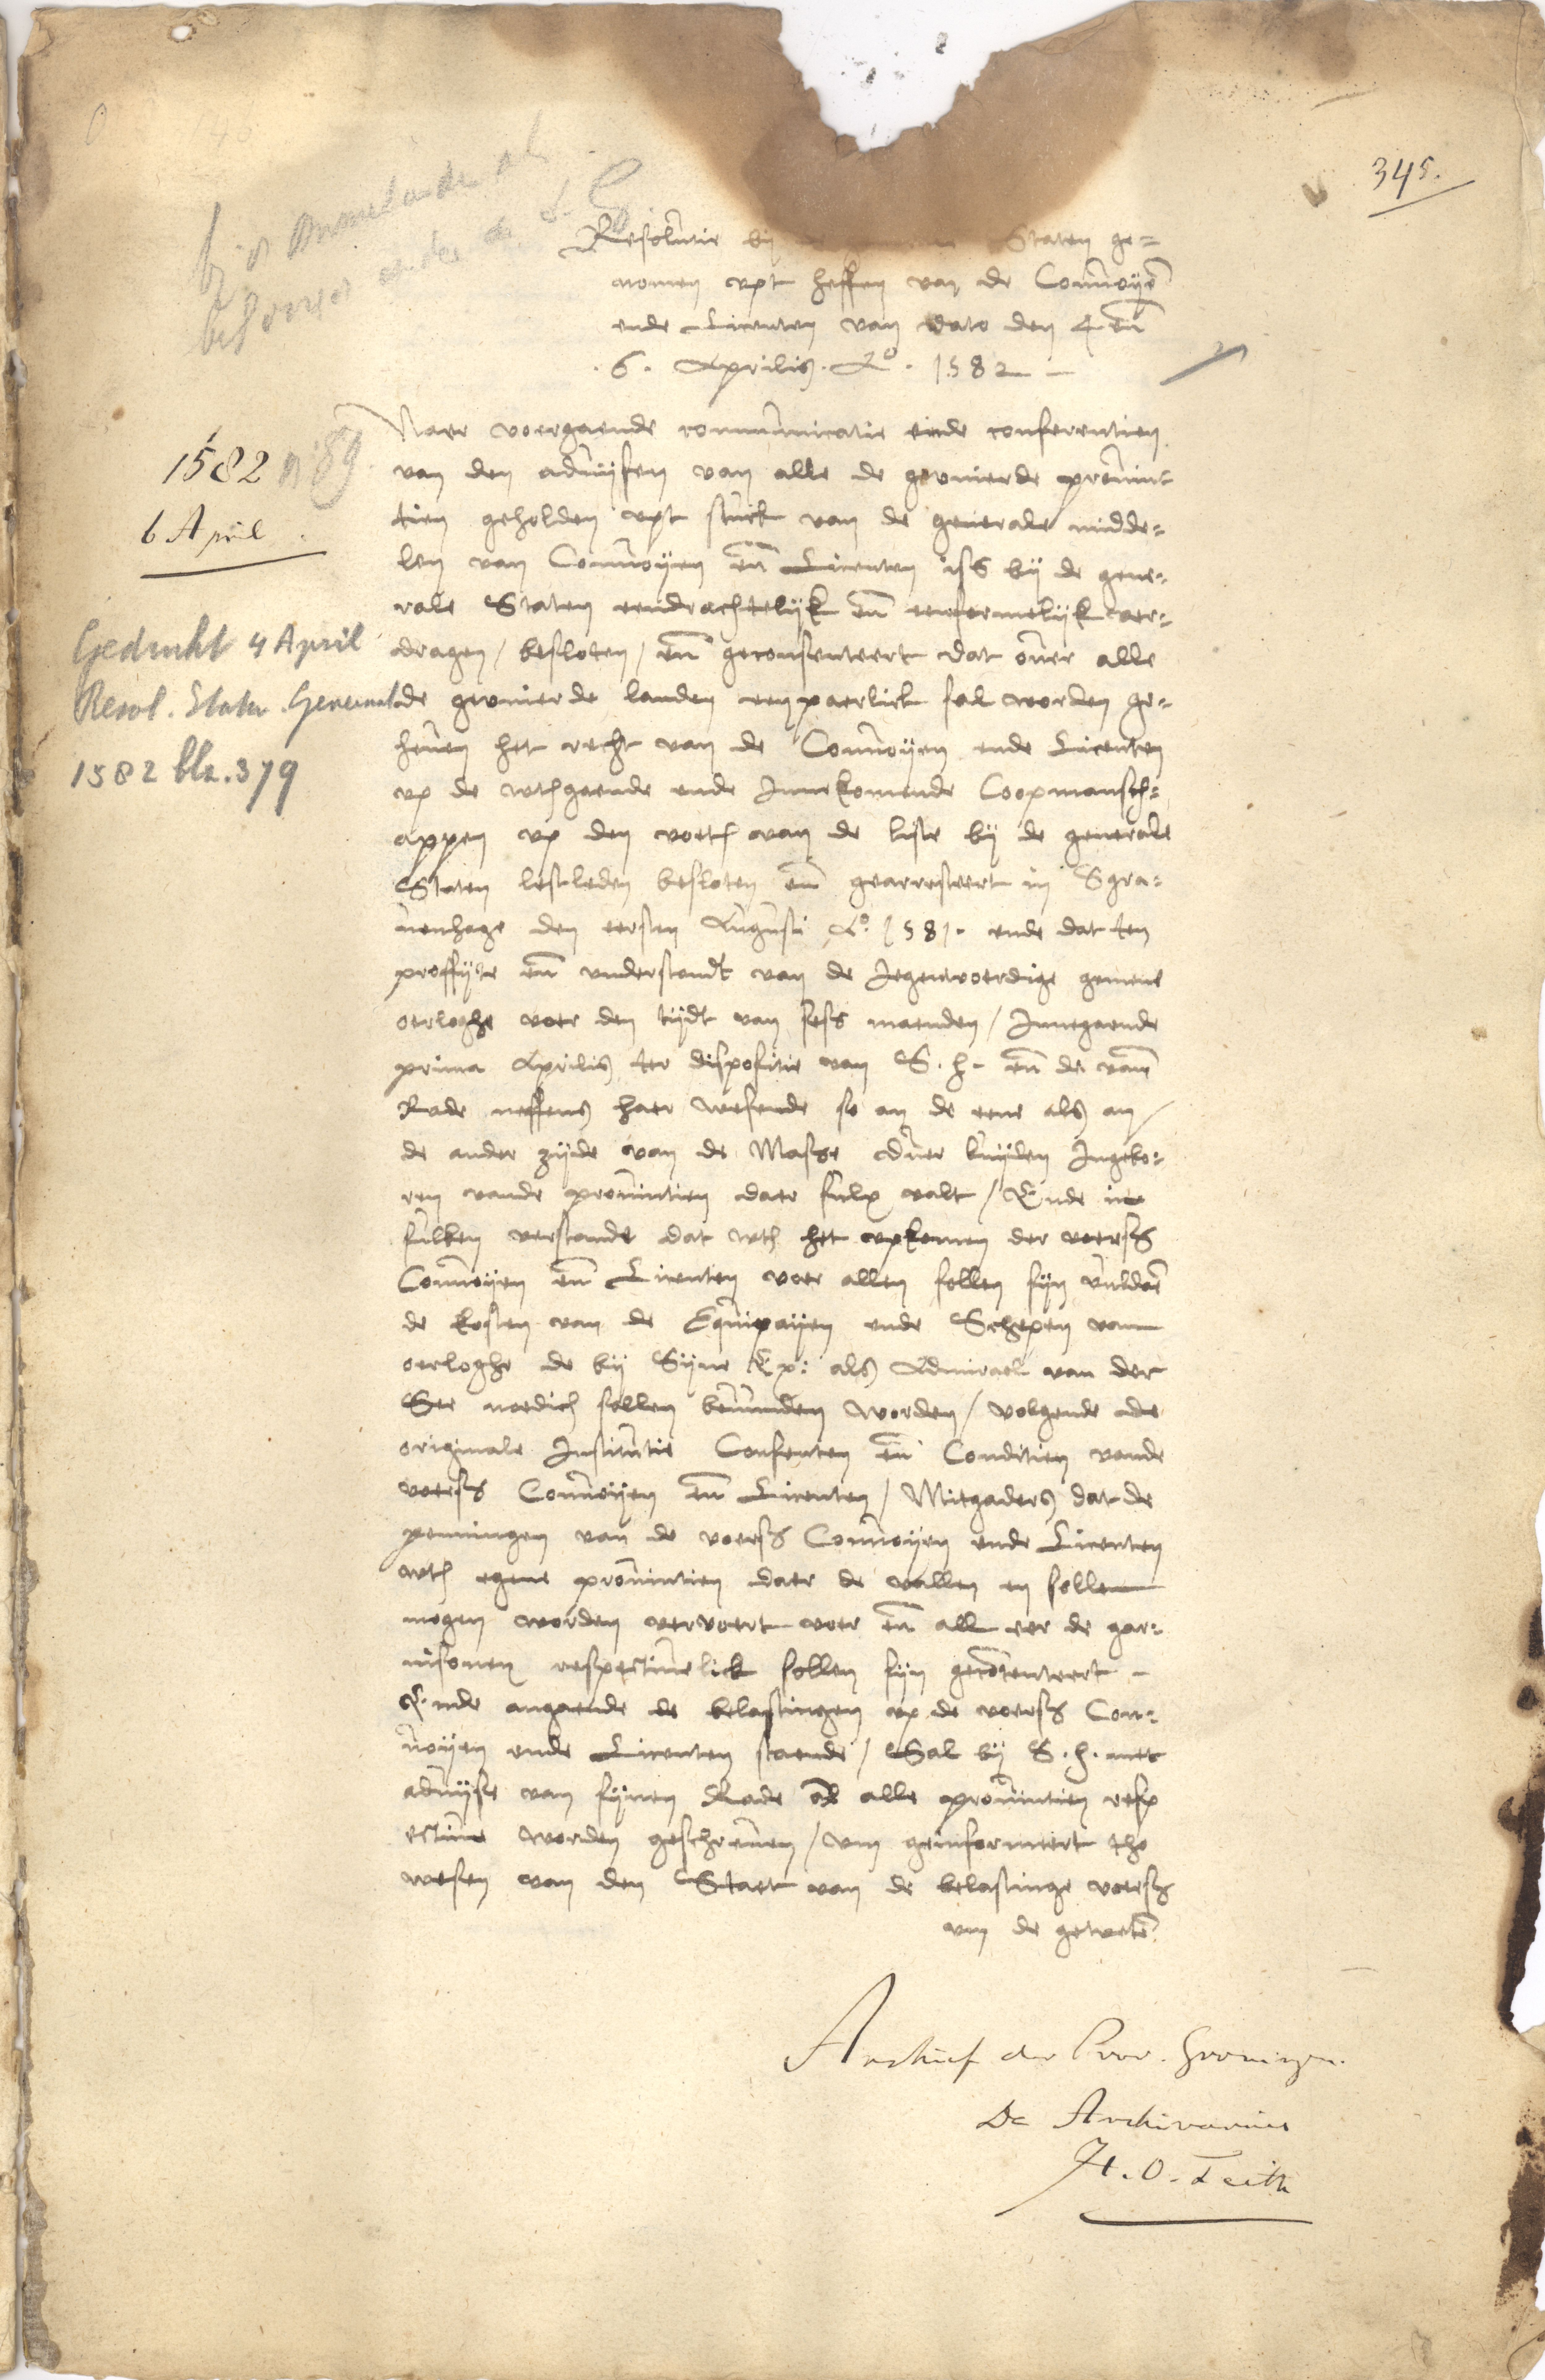 345.
Resolutie bij Staten ge=
nomen vpt heffen van de Connoyē
ende Licenten van dato den 4 en̄
.6. Aprilis. Aº. 1582 -
1582 n 89
6 April.
Gedrukt 4 April
Resol. Staten Generaal
1582 blz. 379
Naer voergaende communicatie ende conferentien
van den aduijsen van alle de gevnierde prouinc
tien geholden vpt stuck van de generale midde=
len van Connoyen en̄ Licenten iss bij de gene=
rale Staten eendrachtelijk en̄ eenformelijk ver=
dragen / besloten / en̄ geconsenteert dat ouer alle
de gevnierde landen eenpaerlick sal worden ge=
heuen het recht van de Connoyen ende Licenten
vp de wthgaende ende Innekomende Coopmansch=
appen vp den voeth van de liste bij de generale
Staten lestleden besloten en̄ gearresteert in Sgra=
uenhage den eersten Augusti Aº. 1581. ende dat ten
proffijte en̄ vnderstandt van de Jegenwoerdige gemene
oerloghe voer den tijdt van sess maenden / Innegaende
prima Aprilis ter dispositie van S. h. en̄ de van̄
Rade neffens haer wesende so an de eene als an /
de ander zijde van de Masse ouer luijden Ingebo=
ren vande prouintien daer sulx valt / Ende in
sulken verstande dat wth het vpkomen der voerss
Connoyen en̄ Licenten voer allen sollen sijn vuldaē
de kosten van de Equipaijen ende Schepen van
oerloghe de bij Sijne Ex: als Admirael van der
See noedich sollen beuunden worden / volgende de
originale Institutie Consenten en̄ Conditien vande
voerss Connoyen en̄ Licenten / Mitgaders dat de
penningen van de voerss Connoyen ende Licenten
wth egene prouintien daer de vallen en sollen
mogen worden vervoert voer en̄ all eer de gar=
nisonen respectiuelick sollen sijn gecōtenteert -
Ende angaende de belastingen vp de voerss Con=
noyen ende Licenten staende / Sal bij S. h. met
aduijse van sijnen Rade an alle prouintien resp
ectiue worden geschreuen / vm geinformeert tho
wesen van den Staet van de belastinge voerss
vm de geweten
Archief der Prov. Groningen.
De Archivarius
H. O. Feith